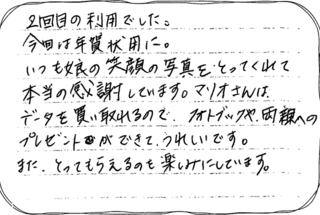 2回目の利用でした。
今回は年賀状用に。
いつも娘の笑顔の写真をとってくれて
本当の感謝しています。マリオさんは、
データを買い取れるので、フォトブックや両親への
プレゼントができて、うれしいです。
また、とってもらえるのも楽しみにしています。